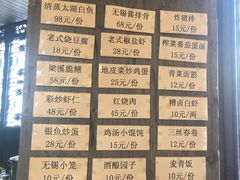 清蒸太湖白鱼
98元/份
无锡酱排骨
68元/份
炸猪排
15元/份
老式烧豆腐
18元/份
老式椒盐虾
58元/份
榨菜番茄蛋汤
15元/份
梁溪脆鳝
58元/份
地皮菜炒鸡蛋
25元/份
青菜面筋
12元/份
彩炒虾仁
48元/份
红烧肉
45元/份
糟卤白虾
10元/两
银鱼炒蛋
28元/份
鸡汤小馄饨
15元/份
三丝春卷
12元/份
无锡小笼
10元/份
酒酿园子
10元/份
麦青饭
10元/份